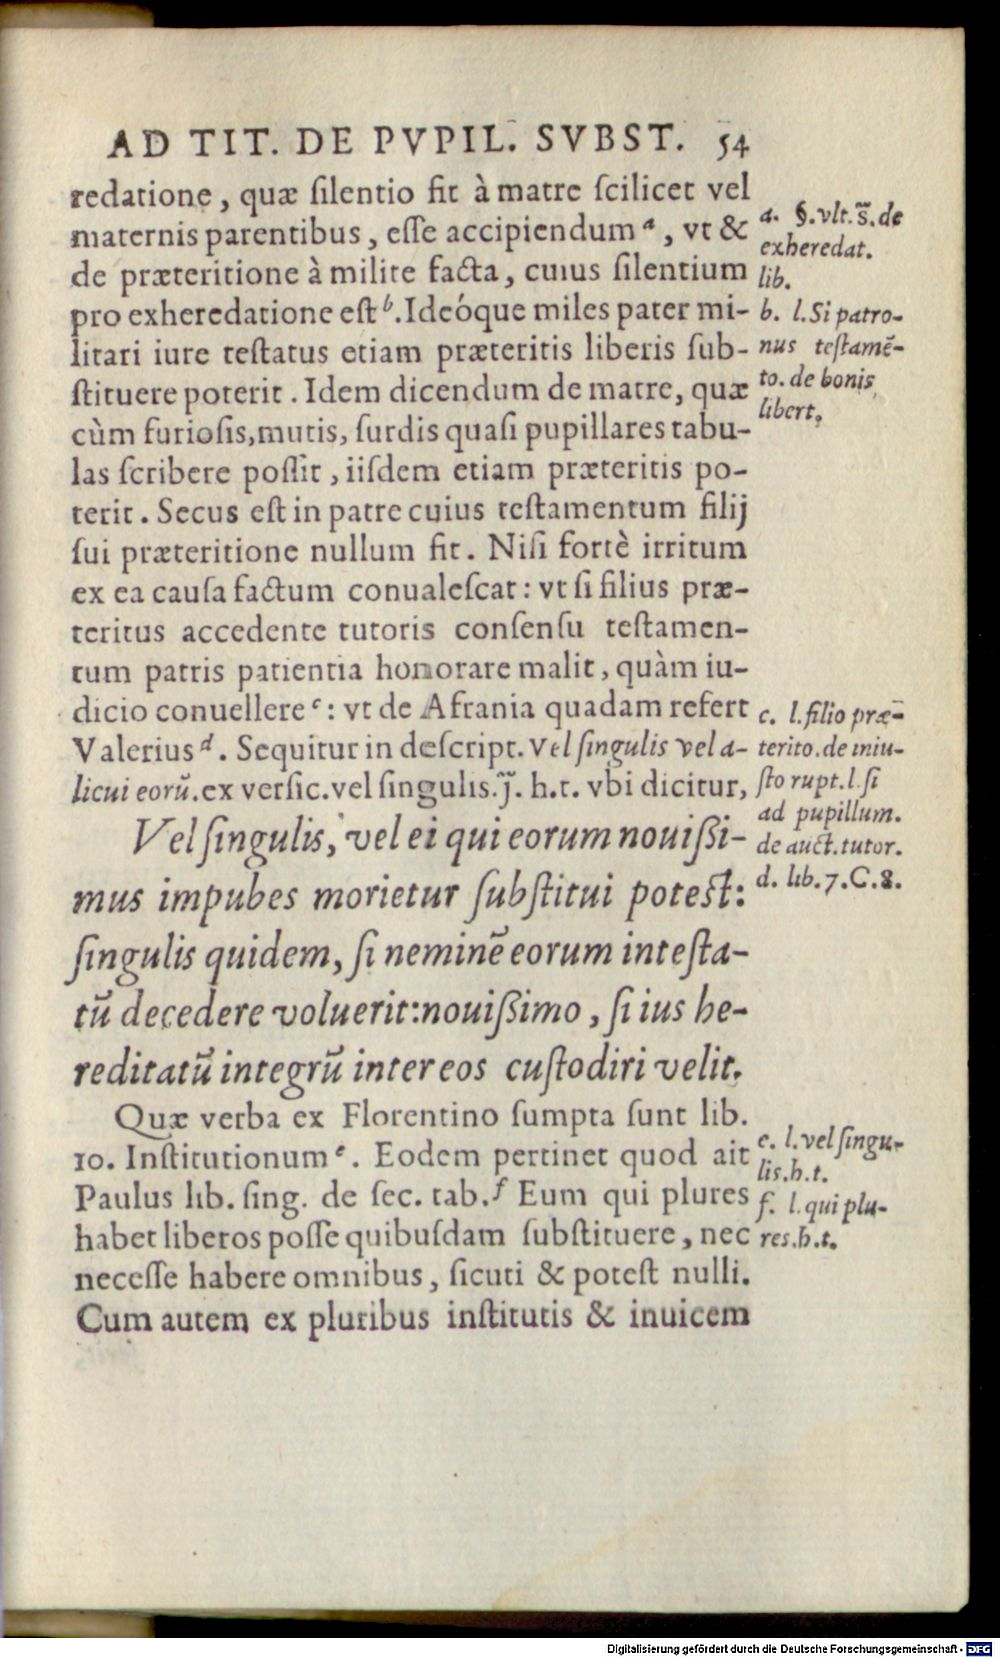 AD TIT. DE PVPIL. SVBST. 54
redatione, quæ ſilentio fit à matre ſcilicet vel
maternis parentibus, eſſe accipiendum ᵃ, vt &
de præteritione à milite facta, cuius ſilentium
pro exheredatione eſt ᵇ. Ideóque miles pater mi-
litari iure teſtatus etiam præteritis liberis ſub-
ſtituere poterit. Idem dicendum de matre, quæ
cùm furioſis, mutis, ſurdis quaſi pupillares tabu-
las ſcribere poſſit, iiſdem etiam præteritis po-
terit. Secus eſt in patre cuius teſtamentum filij
ſui præteritione nullum fit. Niſi fortè irritum
ex ea cauſa factum conualeſcat: vt ſi filius præ-
teritus accedente tutoris conſenſu teſtamen-
tum patris patientia honorare malit, quàm iu-
dicio conuellere ᶜ: vt de Afrania quadam refert
Valerius ᵈ. Sequitur in deſcript. Vel ſingulis vel a-
licui eorū. ex verſic. vel ſingulis. j̃. h.t. vbi dicitur,
Vel ſingulis, vel ei qui eorum nouißi-
mus impubes morietur ſubſtitui poteſt:
ſingulis quidem, ſi neminē eorum inteſta-
tū decedere voluerit: nouißimo, ſi ius he-
reditatū integrū inter eos cuſtodiri velit.
Quæ verba ex Florentino ſumpta ſunt lib.
10. Inſtitutionum ᵉ. Eodem pertinet quod ait
Paulus lib. ſing. de ſec. tab. ᶠ Eum qui plures
habet liberos poſſe quibuſdam ſubſtituere, nec
neceſſe habere omnibus, ſicuti & poteſt nulli.
Cum autem ex pluribus inſtitutis & inuicem
a. §. vlt. s̃. de
exheredat.
lib.
b. l. Si patro-
nus teſtamē-
to. de bonis
libert.
c. l. filio præ-
terito. de iniu-
ſto rupt. l. ſi
ad pupillum.
de auct. tutor.
d. lib. 7. C. 8.
e. l. vel ſingu-
lis. h. t.
f. l. qui plu-
res. h. t.
Digitalisierung gefördert durch die Deutsche Forschungsgemeinschaft - DFG